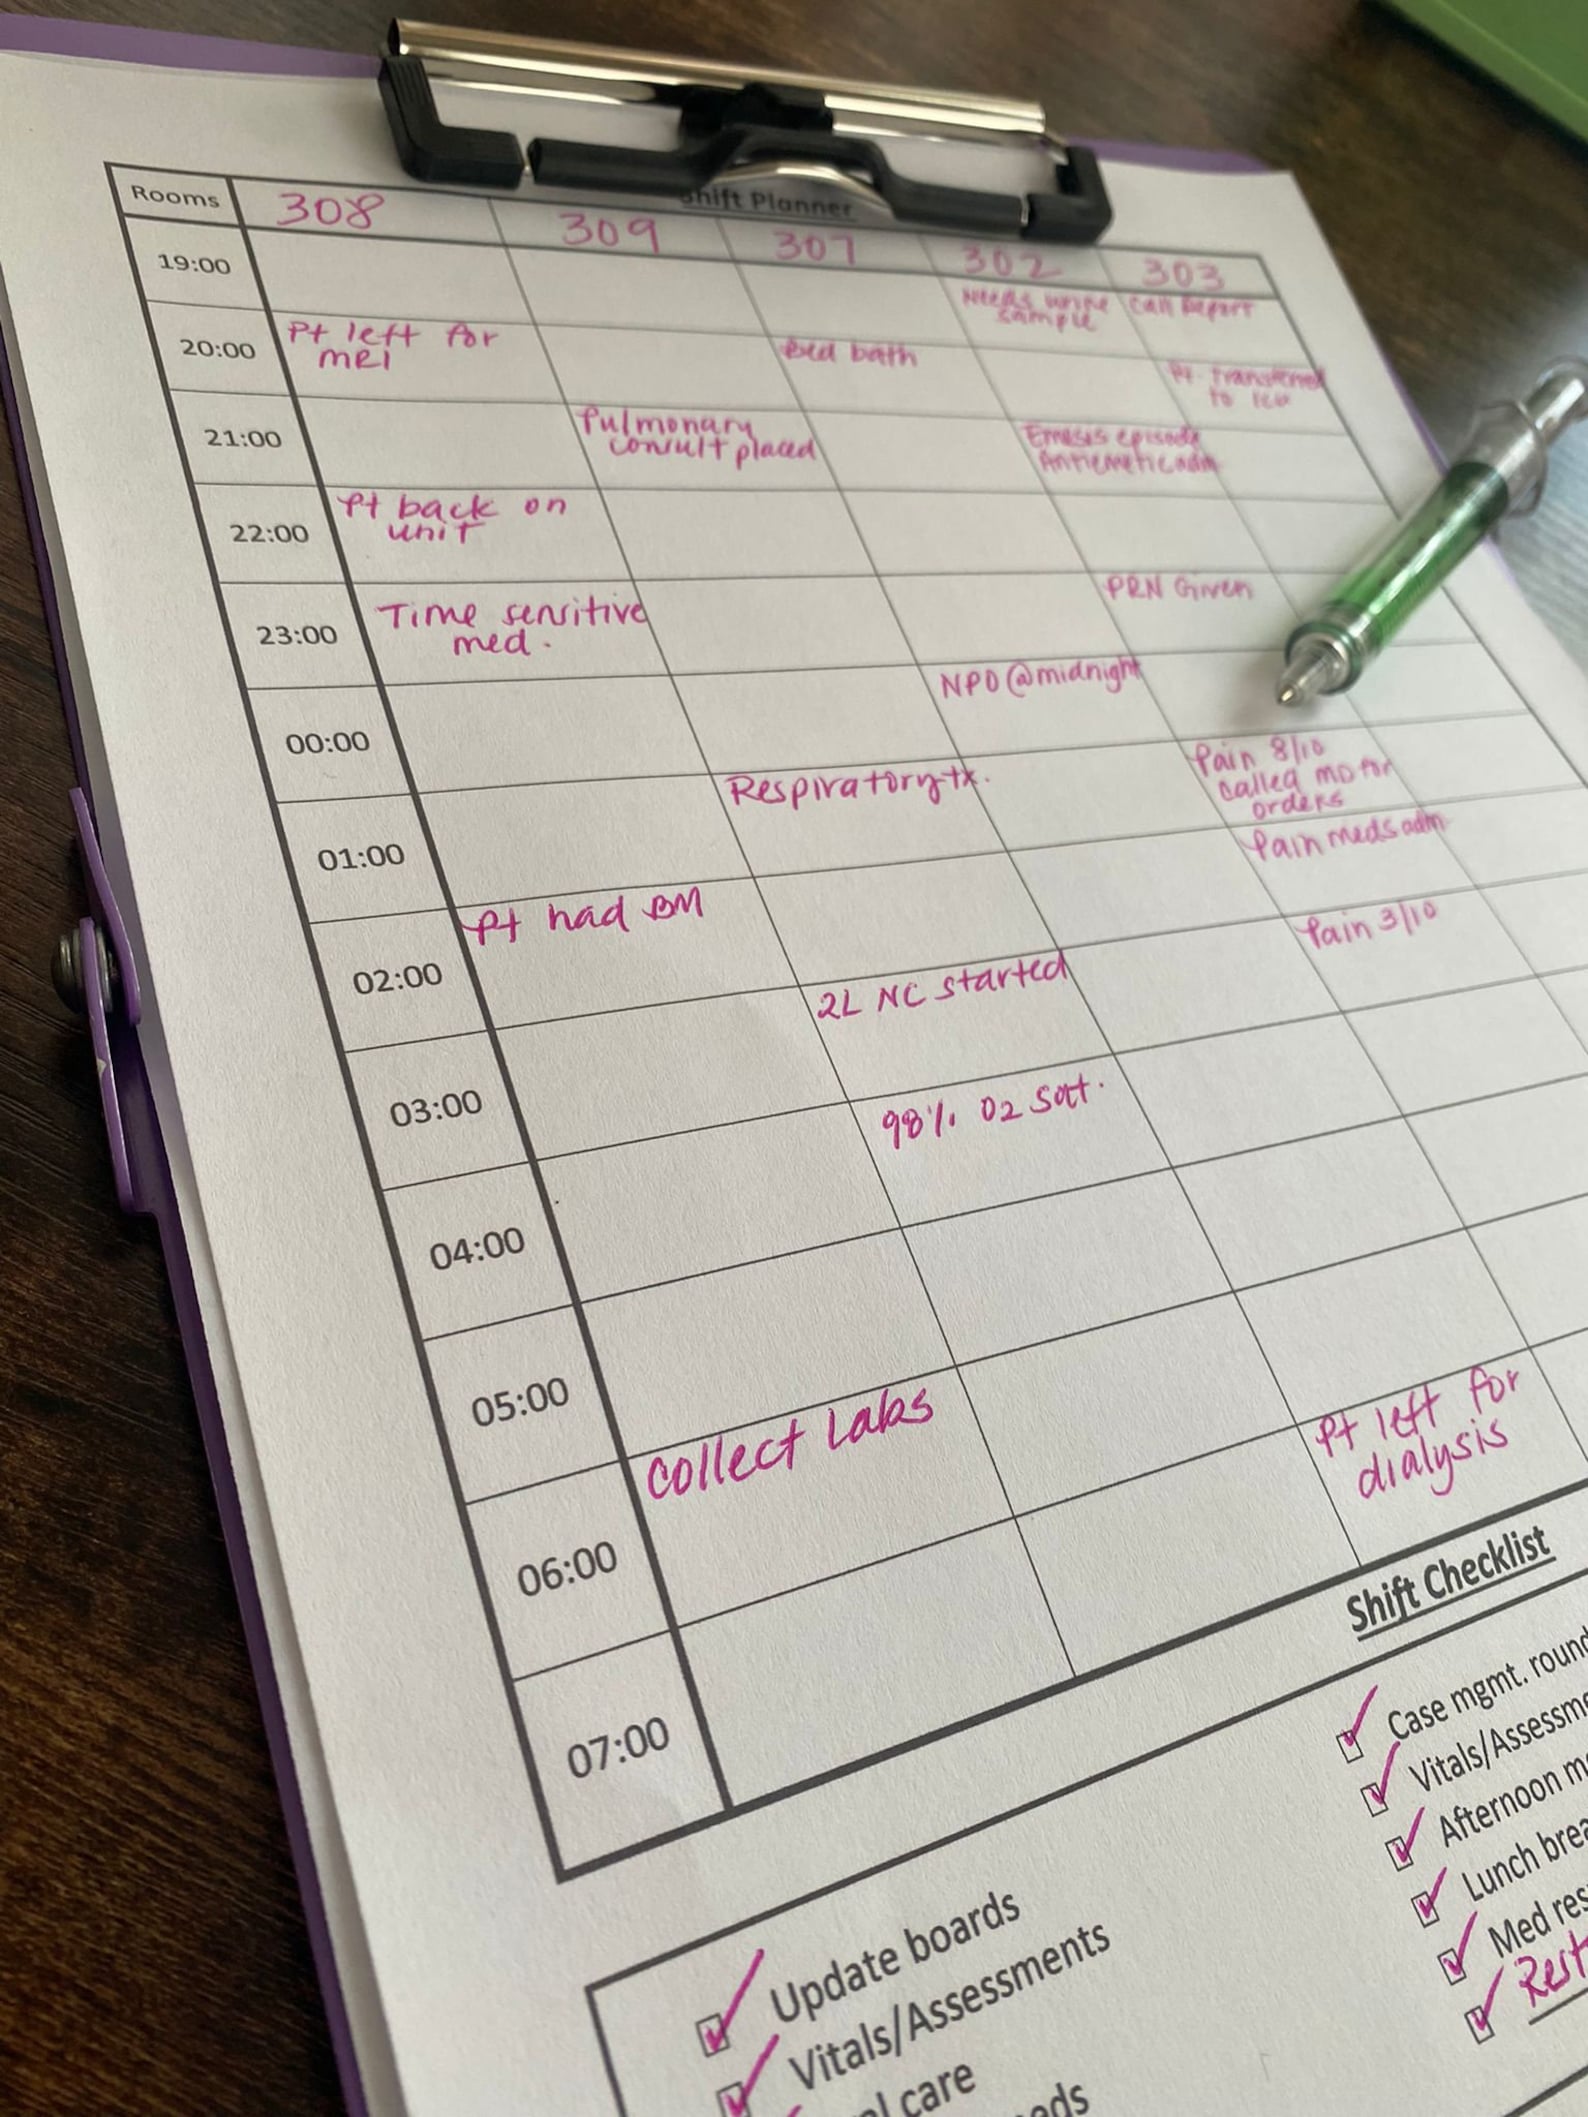 Shift Planner
Rooms 308 309 307 302 303
19:00 Needs urine Call Report
sample
20:00 Pt left for Bed bath Pt transferred
MRI to ICU
21:00 Pulmonary Emesis episode
consult placed Antiemetic adm
22:00 Pt back on
unit
23:00 Time sensitive PRN Given
med.
00:00 NPO @midnight
01:00 Respiratory tx. Pain 8/10
called MD for
orders
Pain meds adm
02:00 Pt had BM Pain 3/10
03:00 2L NC started
04:00 98% O2 Satt.
05:00
06:00 Collect Labs
07:00 Pt left for
dialysis
Shift Checklist
Update boards
Vitals/Assessments
care
Case mgmt. round
Vitals/Assessme
Afternoon m
Lunch brea
Med res
Rest